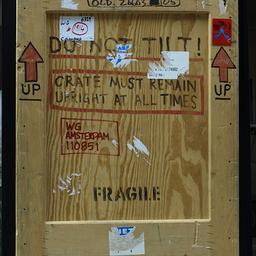 DO NOT TILT!
CRATE MUST REMAIN
UPRIGHT AT ALL TIMES
UP
UP
WG
AMSTERDAM
110851
FRAGILE